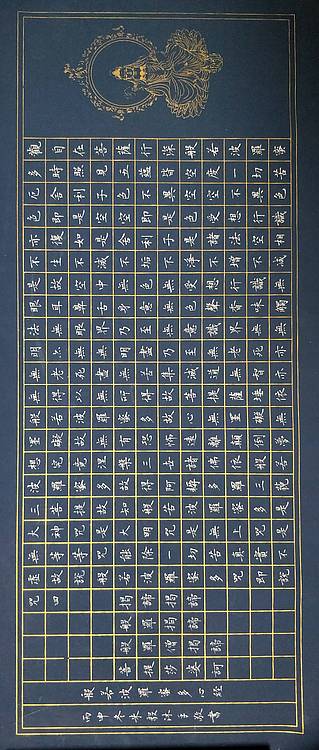 觀自在菩薩行深般若波羅蜜
多時照見五蘊皆空度一切苦
厄舍利子色不異空空不異色
色即是空空即是色受想行識
亦復如是舍利子是諸法空相
不生不滅不垢不淨不增不減
是故空中無色無受想行識無
眼耳鼻舌身意無色聲香味觸
法無眼界乃至無意識界無無
明亦無無明盡乃至無老死亦
無老死盡無苦集滅道無智亦
無得以無所得故菩提薩埵依
般若波羅蜜多故心無罣礙無
罣礙故無有恐怖遠離顛倒夢
想究竟涅槃三世諸佛依般若
波羅蜜多故得阿耨多羅三藐
三菩提故知般若波羅蜜多是
大神咒是大明咒是無上咒是
無等等咒能除一切苦真實不
虛故說般若波羅蜜多咒即說
咒曰 揭諦揭諦
般羅揭諦
般羅僧揭諦
菩提莎婆訶
般若波羅蜜多心經
丙申冬末毅沐手敬書